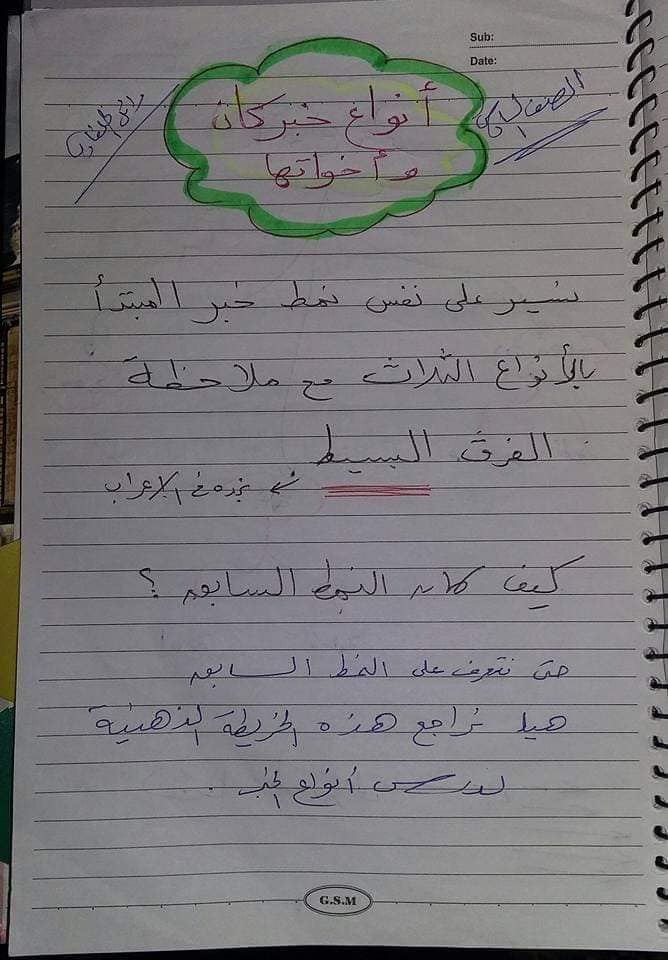 Sub:
Date:
الصف
أنواع خبر كان
وأخواتها
نسير على نفس نمط خبر المبتدأ
بالأنواع الثلاث مع ملاحظة
الفرق البسيط
نجده في الإعراب
كيف كان النمط السابق ؟
حتى نتعرف على النمط السابق
هيا نراجع هذه الخريطة الذهنية
لدرس أنواع الخبر .
G.S.M